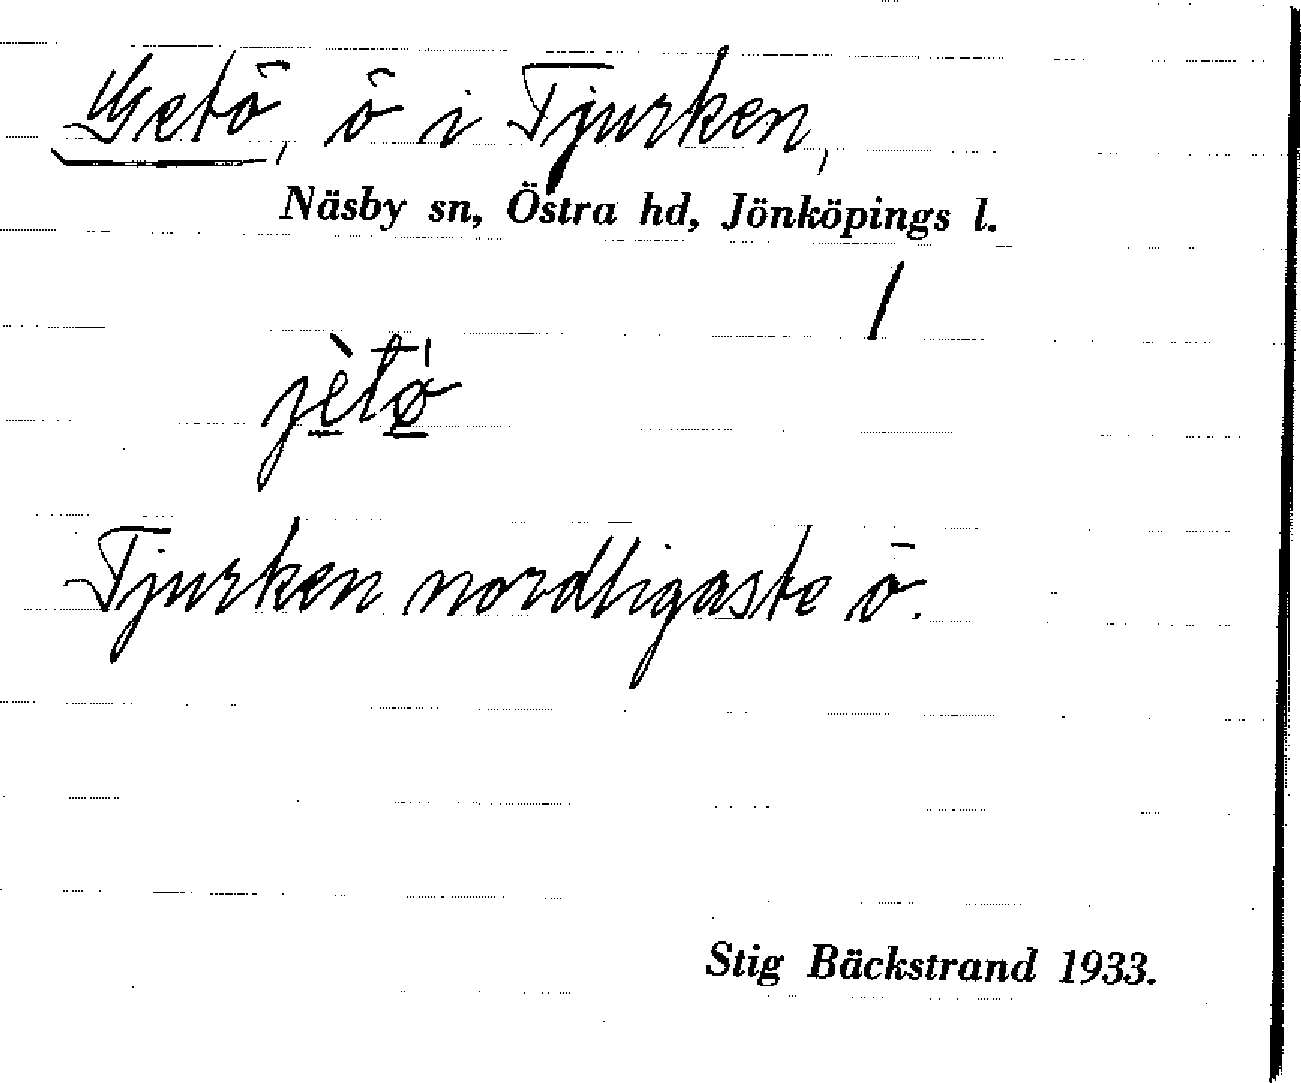 Getö, ö i Tjurken,
Näsby sn, Östra hd, Jönköpings l.
/
jètø̱
Tjurken nordligaste ö.
Stig Bäckstrand 1933.